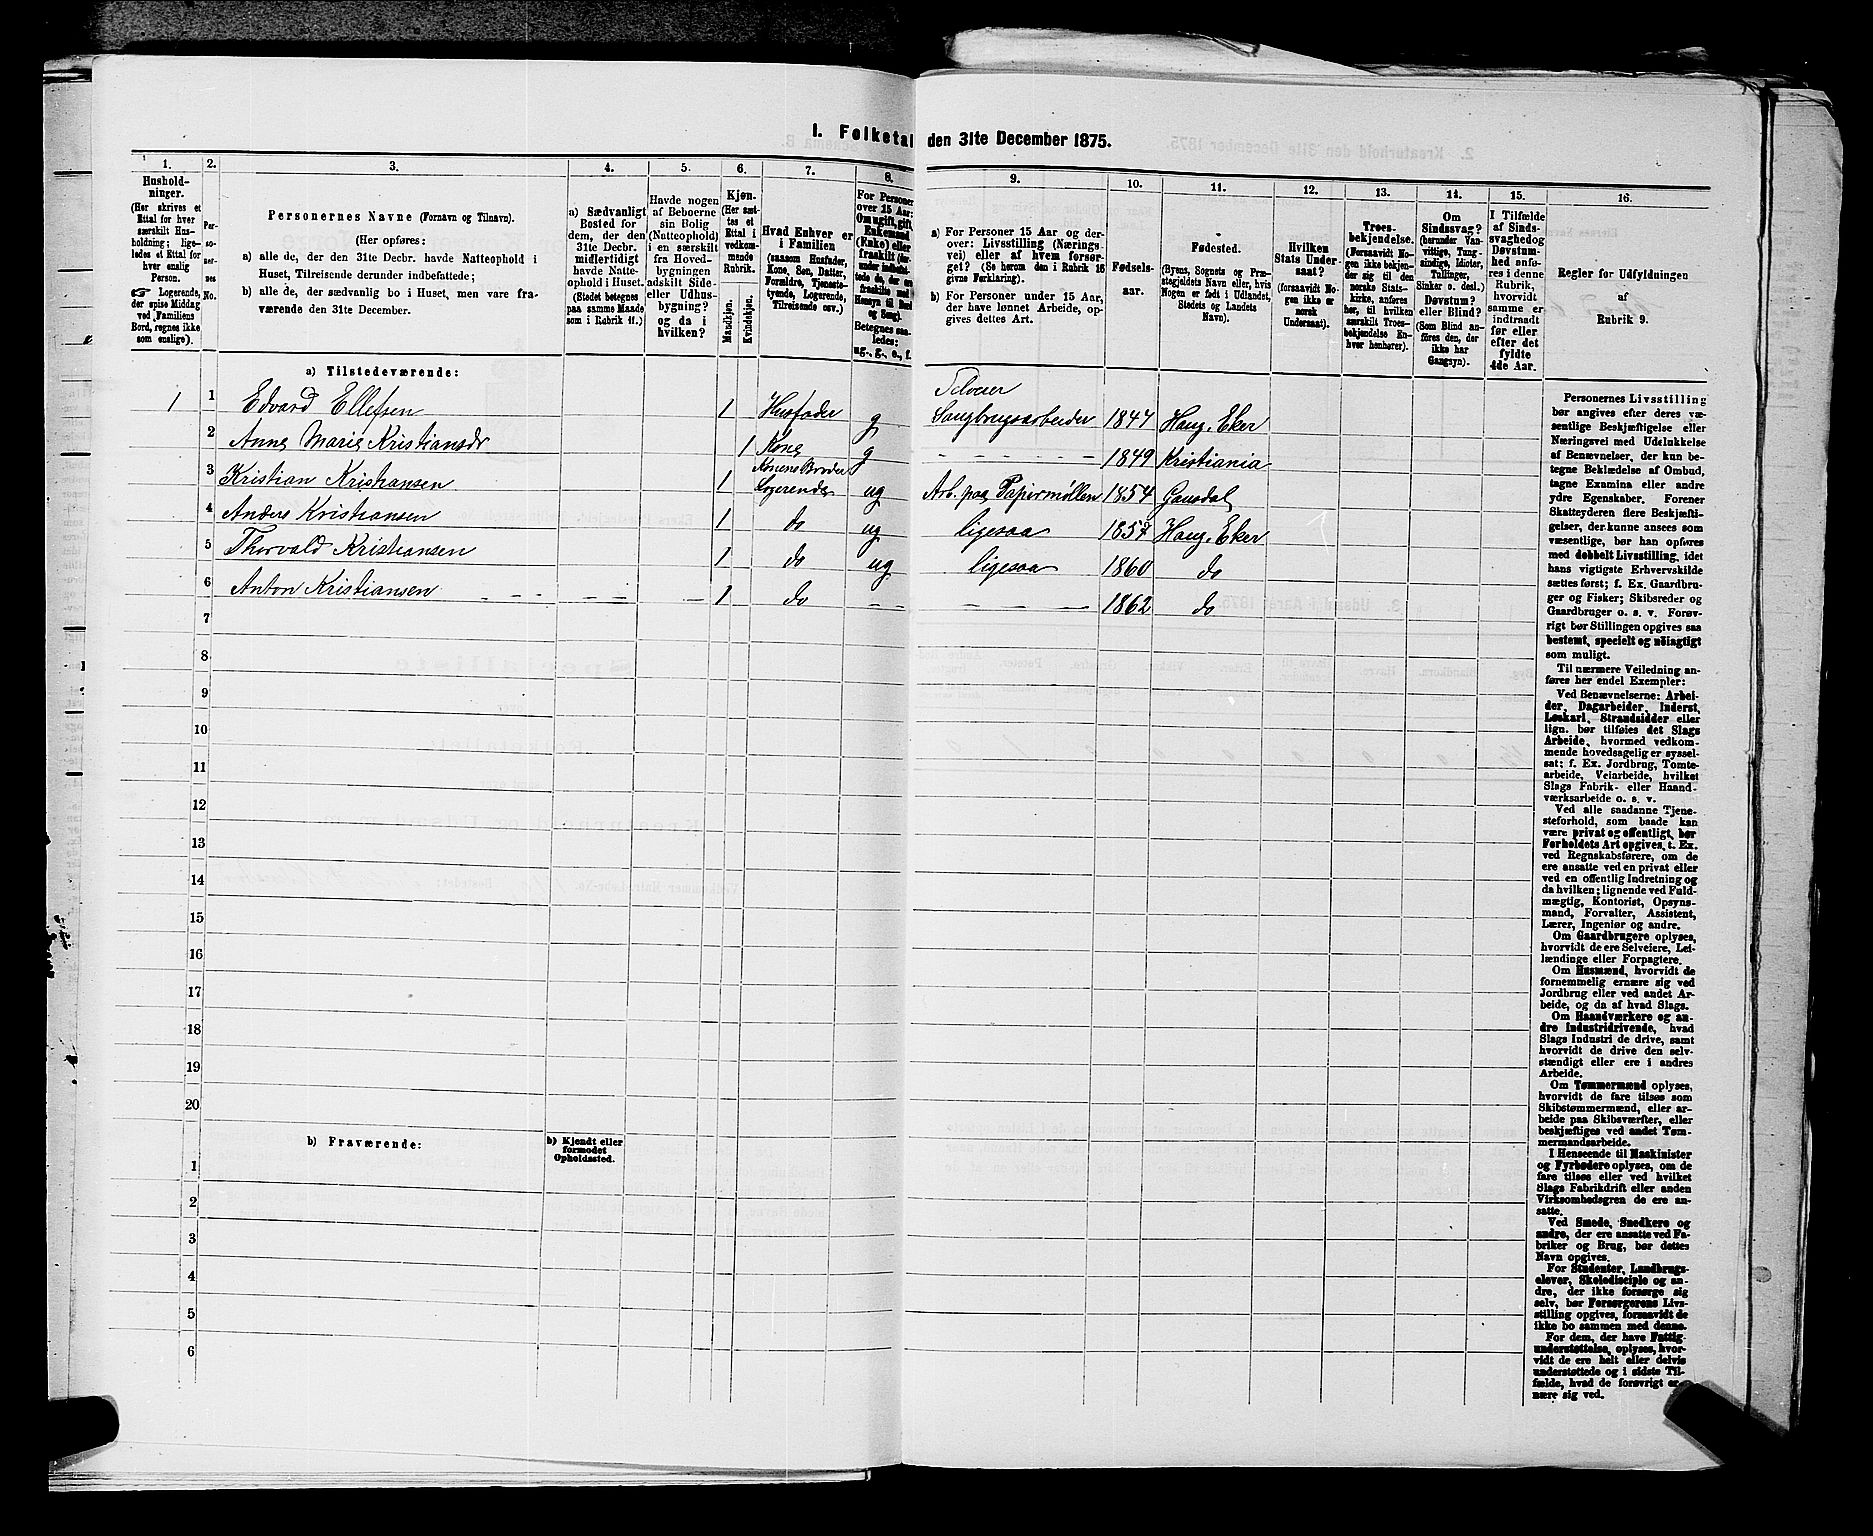 1. Folketal den 31te December 1875.
1. 2. 3. 4. 5. 6. 7. 8. 9. 10. 11. 12. 13. 14. 15. 16.
Hushold-
ninger.
(Her skrives et
Ettal for hver
særskilt Hus-
holdning; lige-
ledes et Ettal for
hver enslig
Person.
☞ Logerende,
der spise Middag
ved Familiens
Bord, regnes ikke
som enslige).
Per-
so-
ner-
nes
No.
Personernes Navne (Fornavn og Tilnavn).
(Her opføres:
a) alle de, der den 31te Decbr. havde Natteophold i
Huset, Tilreisende derunder indbefattede;
b) alle de, der sædvanlig bo i Huset, men vare fra-
værende den 31te December.
a) Sædvanligt
Bosted for
dem, der den
31te Decbr.
midlertidigt
havde Natte-
ophold i Huset.
(Stedet betegnes
paa samme Maade
som i Rubrik 11.)
Havde nogen
af Beboerne
sin Bolig
(Natteophold)
i en særskilt
fra Hoved-
bygningen
adskilt Side-
eller Udhus-
bygning?
og da i
hvilken?
Kjøn.
(Her sæt-
tes et
Ettal i
vedkom-
mende
Rubrik.
Mandkjøn.
Kvindekjøn.
Hvad Enhver er
i Familien
(saasom Husfader,
Kone, Søn, Datter,
Forældre, Tjeneste-
tyende, Logerende,
Tilreisende osv.)
For Personer
over 15 Aar:
Om ugift, gift,
Enkemand
(Enke) eller
fraskilt
Betegnes saa-
ledes:
ug., g., e., f.
a) For Personer 15 Aar og der-
over: Livsstilling (Nærings-
vei) eller af hvem forsør-
get? (Se herom den i Rubrik 16
givne Forklaring).
b) For Personer under 15 Aar,
der have lønnet Arbeide, op-
gives dettes Art.
Fødsels-
aar.
Fødested.
(Byens, Sognets og Præ-
stegjeldets Navn eller, hvis
Nogen er født i Udlandet,
Stedets og Landets
Navn).
Hvilken
Stats Under-
saat?
(forsaavidt No-
gen ikke er
norsk
Undersaat).
Troes-
bekjendelse.
(Forsaavidt No-
gen ikke bekjen-
der sig til den
norske Stats-
kirke, anføres
her, til hvilken
særskilt Troes-
bekjendelse En-
hver henhører).
Om
Sindssvag?
(herunder Van-
vittige, Tung-
sindige, Idioter,
Tullinger,
Sinker o. desl.)
Døvstum?
eller Blind?
(Som Blind an-
føres den, der
ikke har
Gangsyn).
I Tilfælde
af Sinds-
svaghedog
Døvstum-
hed anfø-
res i denne
Rubrik,
hvorvidt
samme er
indtraadt
før eller
efter det
fyldte
4de Aar.
Regler for Udfyldningen
af
Rubrik 9.
a) Tilstedeværende:
1 1 Edvard Ellefsen 1 Husfader g Selveier Saugbrugsarbeider 1847 Haug. Eker
2 Anne Marie Kristiansdr 1 Kone g - - - - - - 1849 Kristiania
3 Kristian Kristiansen 1 Konens Broder Logerende ug Arb. paa Papirmøllen 1854 Gausdal
4 Anders Kristiansen 1 do ug ligesaa 1857 Haug. Eker
5 Thorvald Kristiansen 1 do ug ligesaa 1860 do
6 Anton Kristiansen - - - - - 1 do - - - - - - 1862 do
7
8
9
10
11
12
13
14
15
16
17
18
19
20
b) Fraværende:
b) Kjendt eller
formodet
Opholdssted.
1
2
3
4
5
6
Personernes Livsstilling
bør angives efter deres væ-
sentlige Beskjæftigelse eller
Næringsvei med Udelukkelse
af Benævnelser, der kun be-
tegne Beklædelse af Ombud,
tagne Examina eller andre
ydre Egenskaber. Forener
Skatteyderen flere Beskjæfti-
gelser, der kunne ansees som
væsentlige, bør han opføres
med dobbelt Livsstilling, idet
hans vigtigste Erhvervskilde
sættes først; f. Ex. Gaardbru-
ger og Fisker; Skibsreder og
Gaardbruger o. s. v. Forøv-
rigt bør Stillingen opgives saa
bestemt, specielt og nöiagtigt
som muligt.
Til nærmere Veiledning an-
føres her endel Exempler:
Ved Benævnelserne: Arbei-
der, Dagarbeider, Inderst,
Løskarl, Strandsidder eller
lign. bør tilføies det Slags
Arbeide, hvormed vedkom-
mende hovedsagelig er syssel-
sat; f. Ex. Jordbrug, Tomte-
arbeide, Veiarbeide, hvilket
Slags Fabrik- eller Haand-
værksarbeide o. s. v.
Ved alle saadanne Tjene-
steforhold, som baade kan
være privat og offentligt, bør
Forholdets Art opgives, t. Ex.
ved Regnskabsførere, om de
ere ansatte ved en privat eller
ved en offentlig Indretning og
da hvilken; lignende ved Fuld-
mægtig, Kontorist, Opsyns-
mand, Forvalter, Assistent,
Lærer, Ingeniør og andre.
Om Gaardbrugere oplyses,
hvorvidt de ere Selveiere, Lei-
lændinge eller Forpagtere.
Om Husmænd, hvorvidt de
fornemmelig ernære sig ved
Jordbrug eller ved andet Ar-
beide, og da af hvad Slags.
Om Haandværkere og an-
dre Industridrivende, hvad
Slags Industri de drive, samt
hvorvidt de drive den selv-
stændigt eller ere i andres
Arbeide.
Om Tømmermænd oplyses,
hvorvidt de fare tilsøs som
Skibstømmermænd, eller ar-
beide paa Skibsværfter, eller
beskjæftiges ved andet Tøm-
mermandsarbeide.
I Henseende til Maskinister
og Fyrbødere oplyses, om de
fare tilsøs eller ved hvilket
Slags Fabrikdrift eller anden
Virksomhedsgren de ere an-
satte.
Ved Smede, Snedkere og
andre, der ere ansatte ved Fa-
briker og Brug, bør dettes
Navn opgives.
For Studenter, Landbrugs-
elever, Skoledisciple og an-
dre, der ikke forsørge sig
selv, bør Forsørgerens Livs-
stilling opgives, forsaavidt de
ikke bo sammen med denne.
For dem, der have Fattig-
understøttelse, oplyses, hvor-
vidt de ere helt eller delvis
understøttede og i sidste Til-
fælde, hvad de forøvrigt er-
nære sig ved.